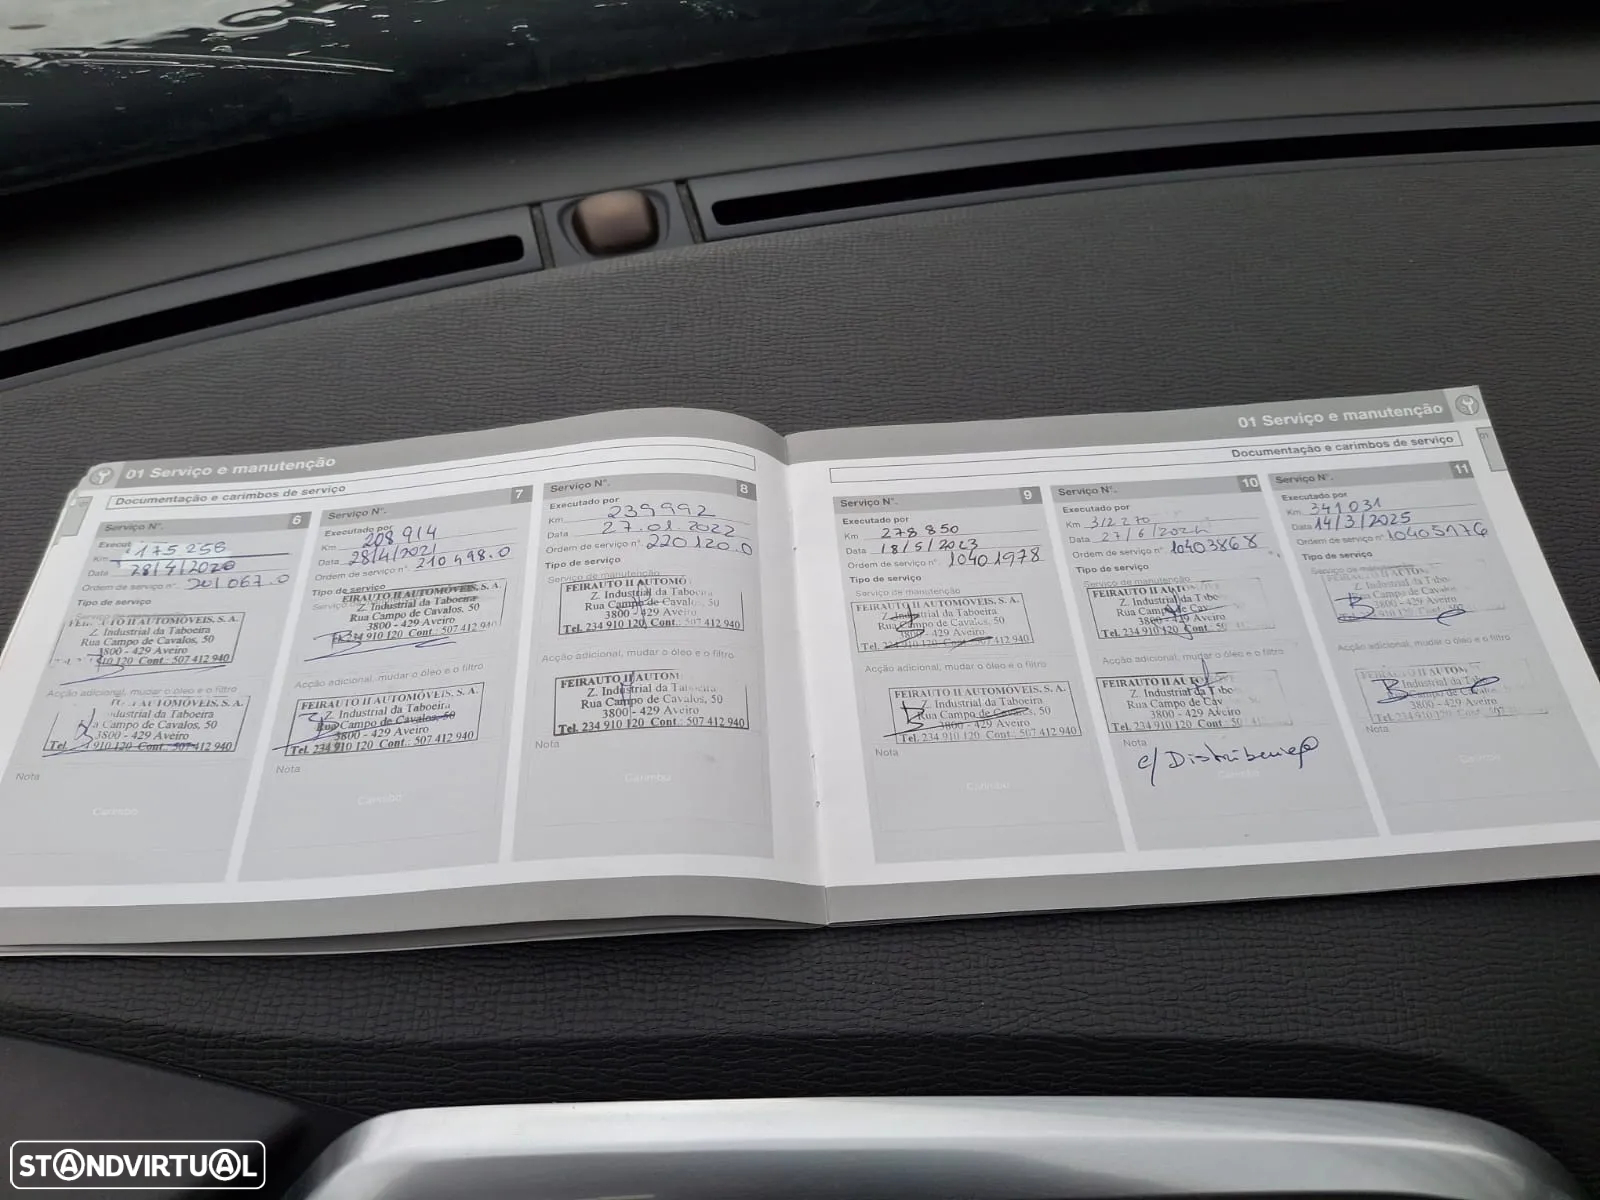 01 Serviço e manutenção
Documentação e carimbos de serviço
Serviço N°. 6
Km 175 256
Data 28/4/2020
Ordem de serviço n°. 201 067.0
Tipo de serviço
Z. Industrial da Taboeira
Rua Campo de Cavalos, 50
3800 - 429 Aveiro
910 120 Cont.: 507 412 940
Acção adicional, mudar o óleo e o filtro
II AUTOMÓVEIS, S. A.
Industrial da Taboeira
Campo de Cavalos, 50
3800 - 429 Aveiro
Tel. 910 120 Cont.: 507 412 940
Nota
Carimbo
Serviço N°. 7
Executado por
Km 208 914
Data 28/4/2021
Ordem de serviço n°. 210 498.0
Tipo de serviço
FEIRAUTO II AUTOMÓVEIS, S. A.
Z. Industrial da Taboeira
Rua Campo de Cavalos, 50
3800 - 429 Aveiro
234 910 120 Cont.: 507 412 940
Acção adicional, mudar o óleo e o filtro
FEIRAUTO II AUTOMÓVEIS, S. A.
Z. Industrial da Taboeira
Rua Campo de Cavalos, 50
3800 - 429 Aveiro
Tel. 234 910 120 Cont.: 507 412 940
Nota
Carimbo
Serviço N°. 8
Executado por
Km 239992
Data 27.01.2022
Ordem de serviço n°. 220120.0
Tipo de serviço
Serviço de manutenção
FEIRAUTO II AUTOMÓ
Z. Industrial da Taboei
Rua Campo de Cavalo, 50
3800 - 429 Aveiro
Tel. 234 910 120 Cont.: 507 412 940
Acção adicional, mudar o óleo e o filtro
FEIRAUTO II AUTOM
Z. Industrial da
Rua Campo de Cavalos, 50
3800 - 429 Aveiro
Tel. 234 910 120 Cont.: 507 412 940
Nota
Carimbo
01 Serviço e manutenção
01
Documentação e carimbos de serviço
Serviço N°. 9
Executado por
Km 278 850
Data 18/5/2023
Ordem de serviço n°. 10401978
Tipo de serviço
Serviço de manutenção
FEIRAUTO II AUTOMÓVEIS, S. A.
Z. Industrial da Taboeira
Rua Campo de Cavalos, 50
3800 - 429 Aveiro
Tel. 234 910 120 Cont.: 507 412 940
Acção adicional, mudar o óleo e o filtro
FEIRAUTO II AUTOMÓVEIS, S. A.
Z. Industrial da Taboeira
Rua Campo de Cavalos, 50
3800 - 429 Aveiro
Tel. 234 910 120 Cont.: 507 412 940
Nota
Carimbo
Serviço N°. 10
Executado por
Km 312 270
Data 27/6/2024
Ordem de serviço n° 10403868
Tipo de serviço
Serviço de manutenção
FEIRAUTO II
Z. Industrial da T
Rua Campo de Cav
3800 - 429 Aveiro
Tel. 234 910 120 Cont.: 507
Acção adicional, mudar o óleo e o filtro
FEIRAUTO II AUTO
Z. Industrial da T
Rua Campo de Cav
3800 - 429 Aveiro
Tel. 234 910 120 Cont.: 507 41
Nota
c/ Distribuição
Carimbo
Serviço N°. 11
Executado por
Km 341031
Data 14/3/2025
Ordem de serviço n°. 10405176
Tipo de serviço
Serviço de manutenção
Z. Industrial da
Campo de Cavalos
3800 - 429 Aveiro
Acção adicional, mudar o óleo e o filtro
II AUTOM
Industrial da
Campo de
3800 - 429 Aveiro
Nota
Carimbo
STANDVIRTUAL